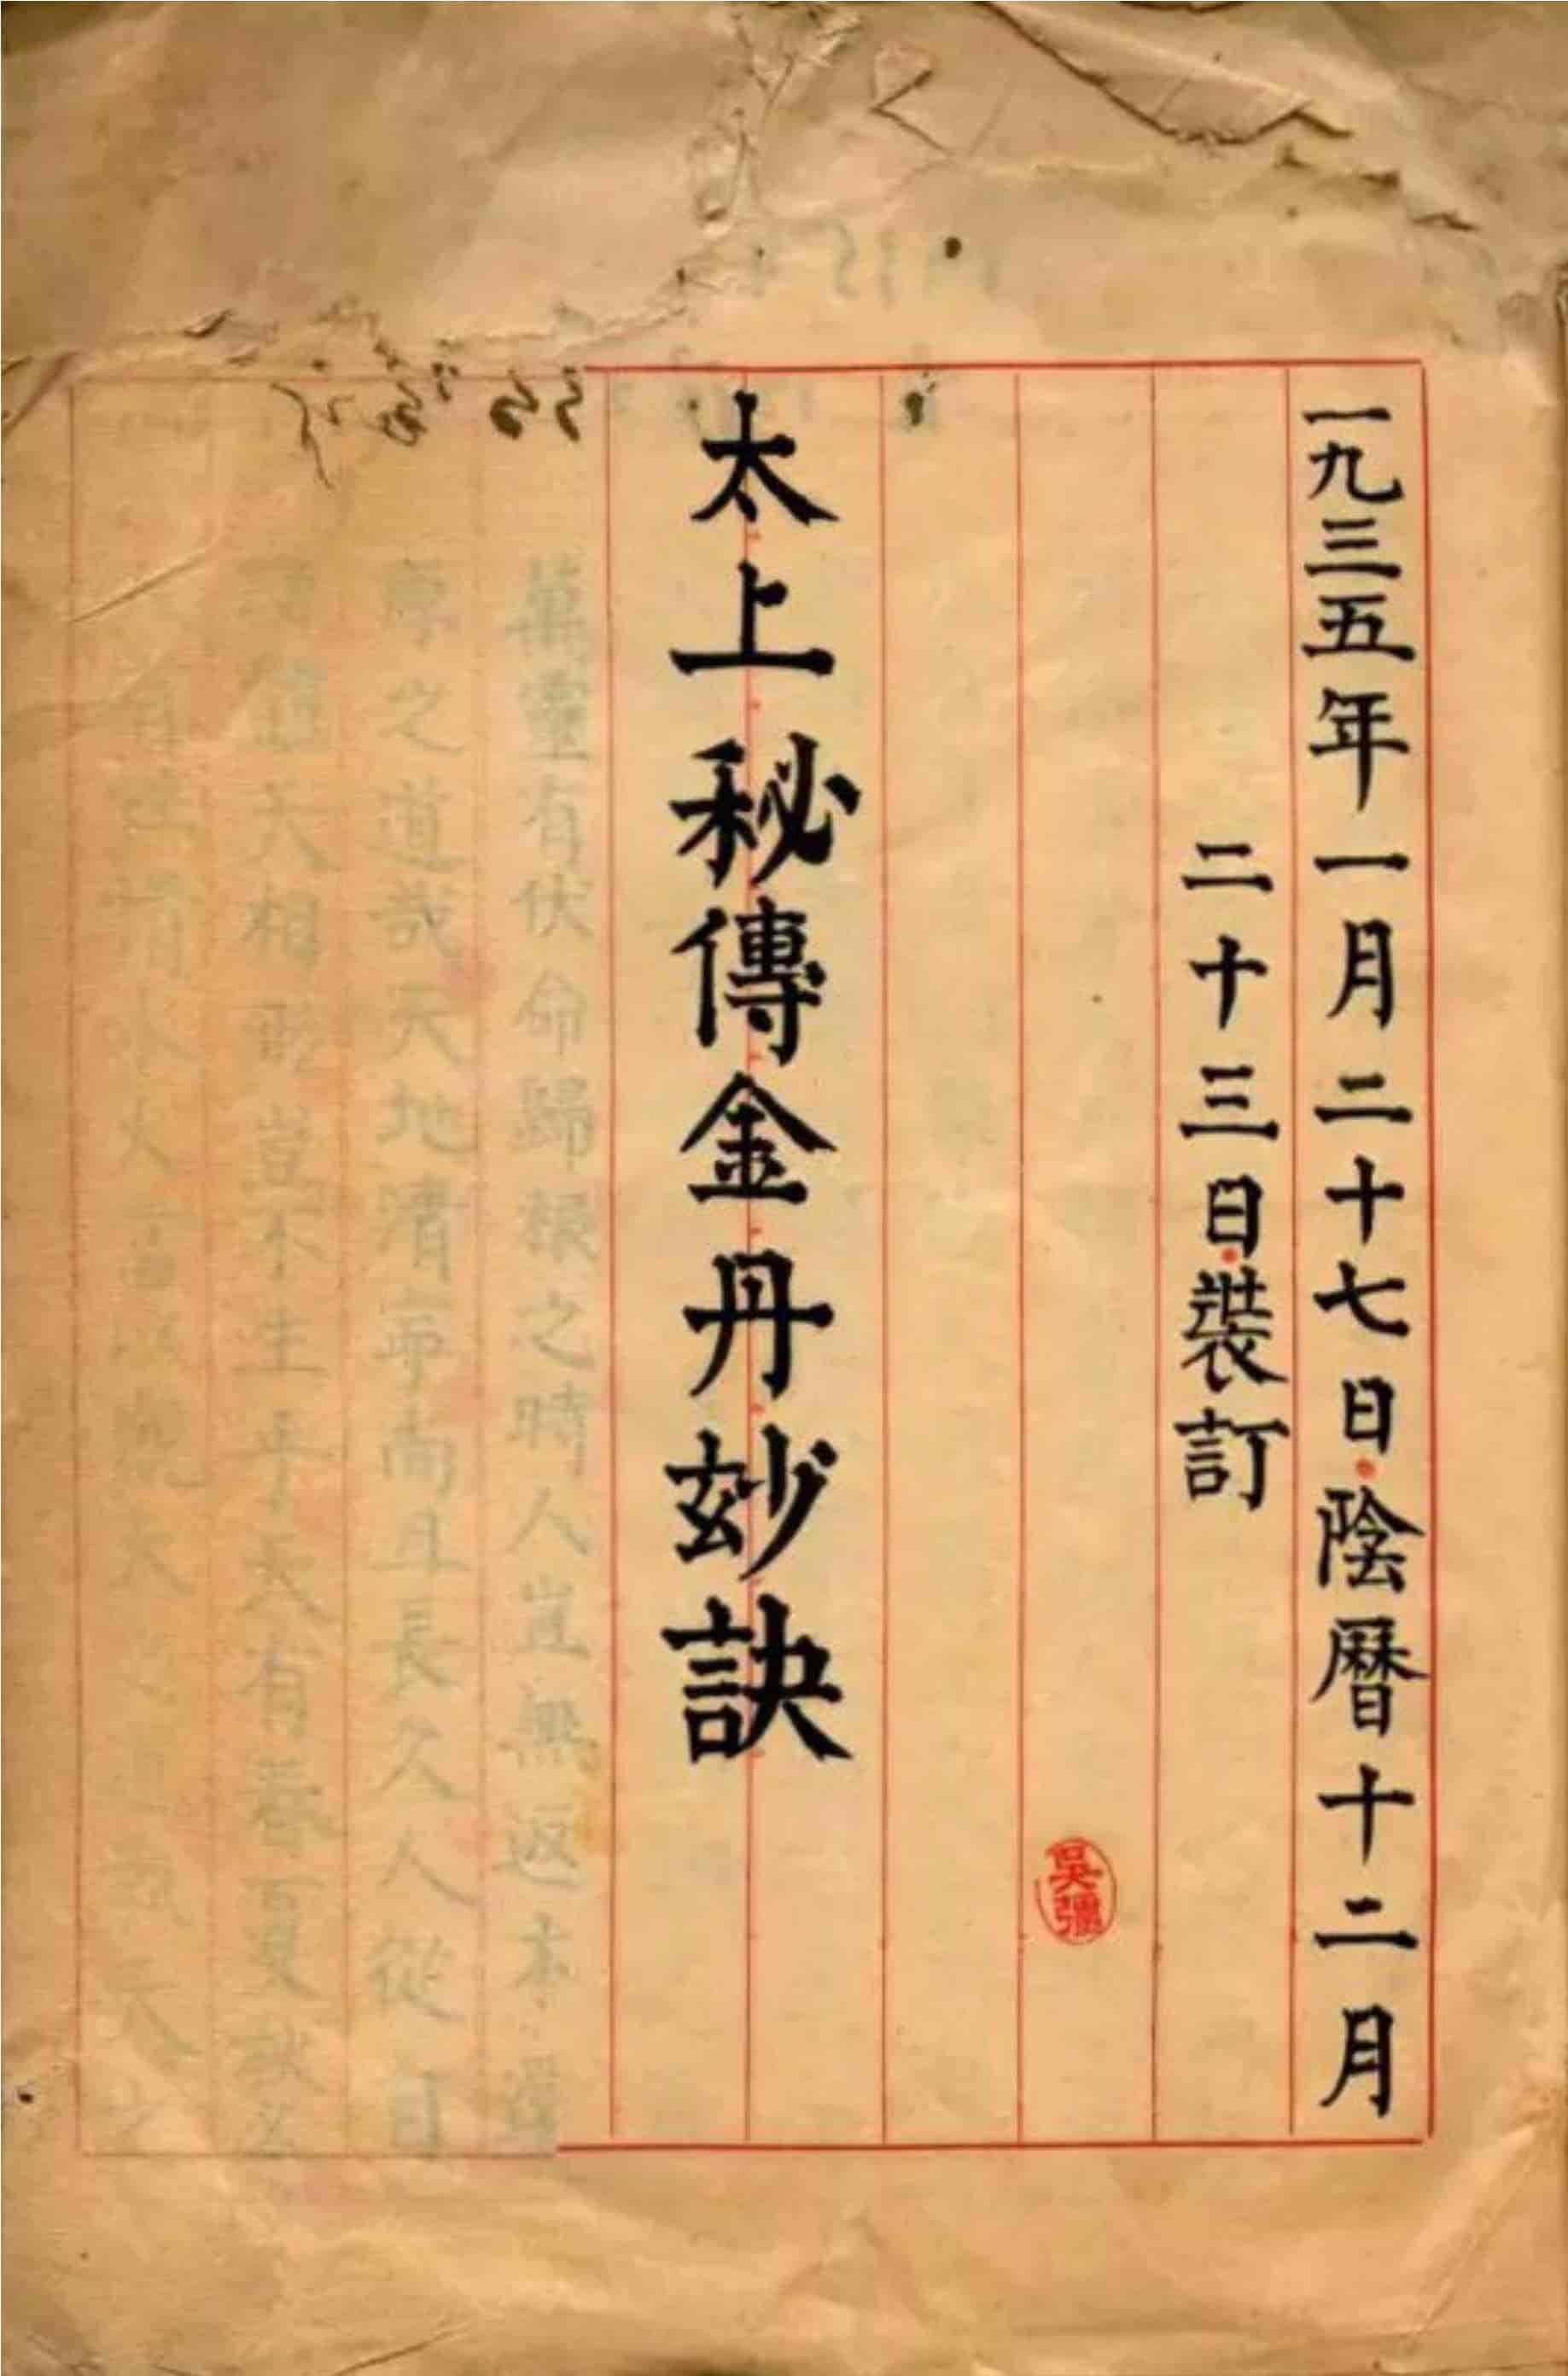 一九三五年一月二十七日·陰曆十二月
二十三日·裝訂
吳彊
太上秘傳金丹玅訣
靈有伏命歸根之時人豈無返本還
之道哉天地清寧而且長久人從自
天相形豈不生乎長有春夏秋